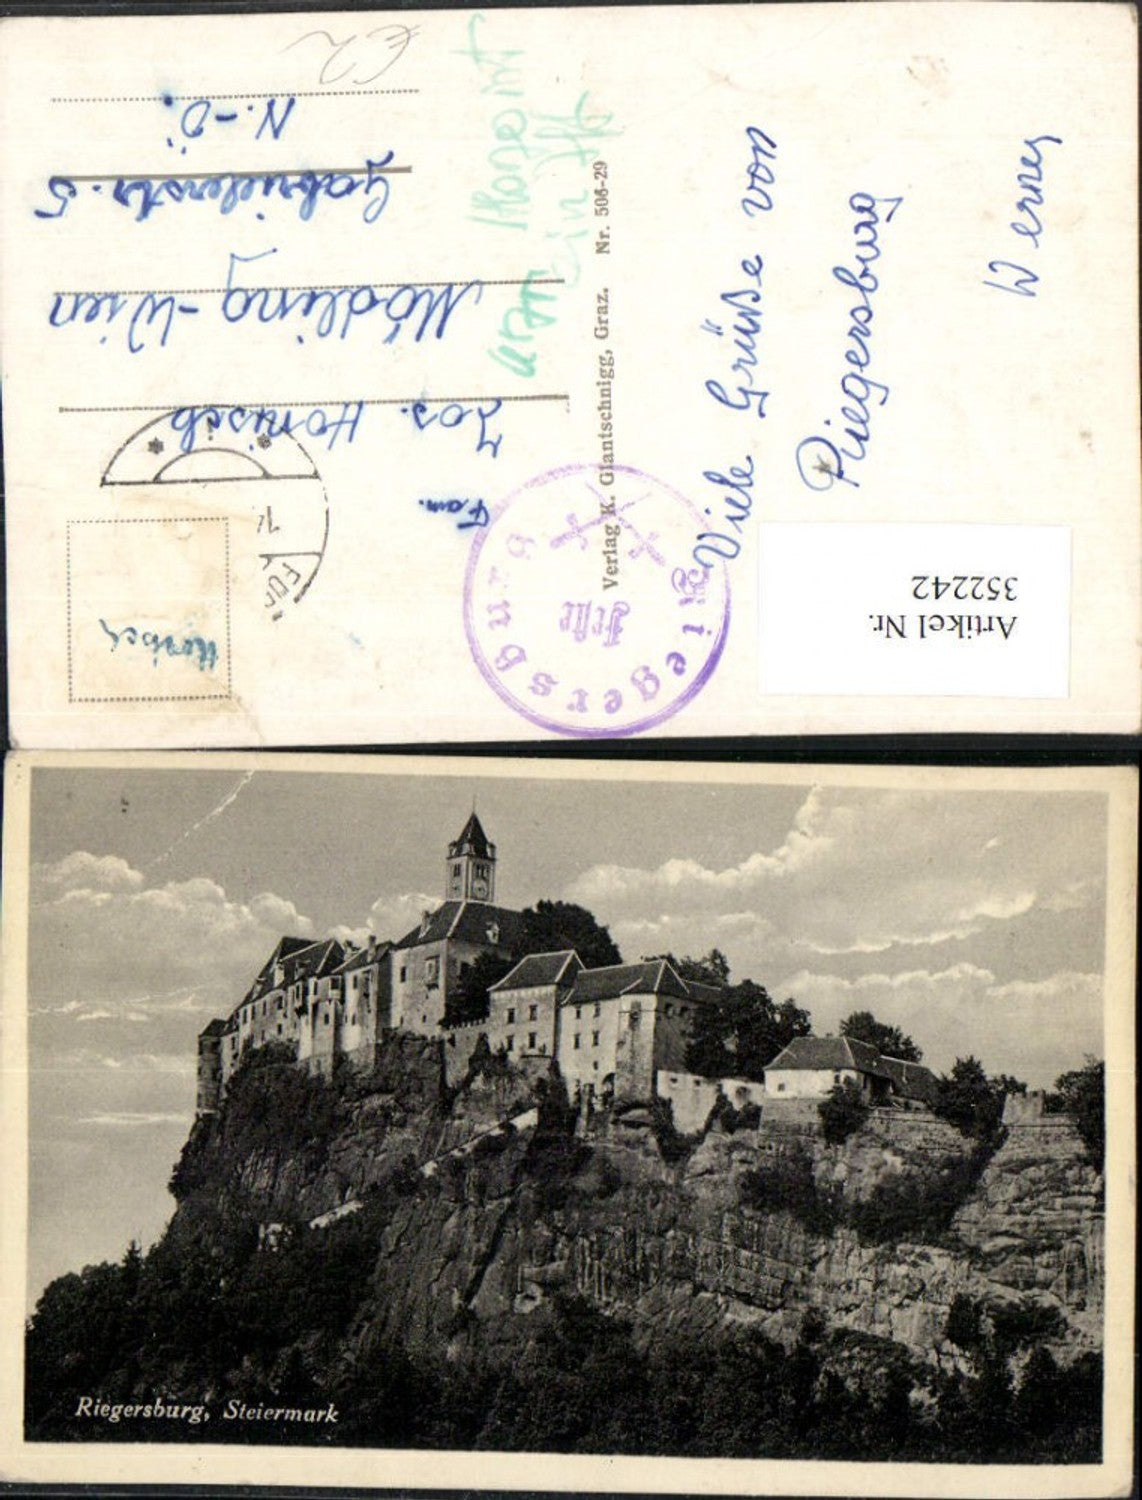 Viele Grüße von
Riegersburg
Werner
Verlag K. Glantschnigg, Graz. Nr. 506-29
Fam.
Jos. Honisch
Mödling-Wien
Gabrielerstr. 5
N.-Ö.
€2
Riegersburg
Feste
Artikel Nr.
352242
Riegersburg, Steiermark